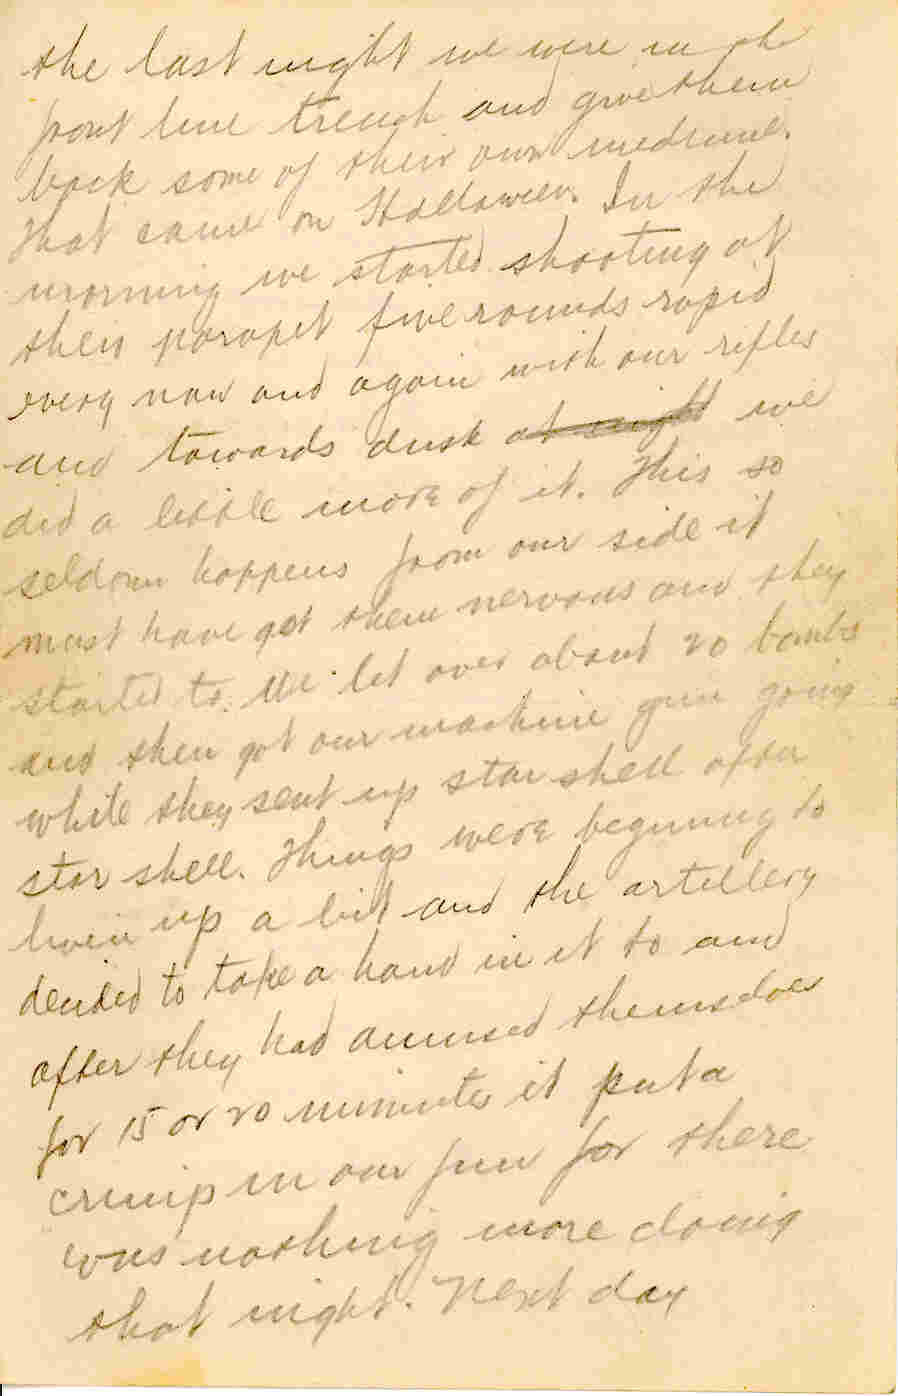 the last night we were in the
front line trench and give them
back some of their own medicine.
That came on Halloween. In the
morning we started shooting at
their parapet five rounds rapid
every now and again with our rifles
and towards dusk at night we
did a little more of it. This so
seldom happens from our side it
must have got them nervous and they
started to. We let over about 20 bombs
and then got our machine gun going
while they sent up star shell after
star shell. Things were beginning to
liven up a bit and the artillery
decided to take a hand in it to and
after they had amused themselves
for 15 or 20 minutes it put a
crimp in our fun for there
was nothing more doing
that night. Next day